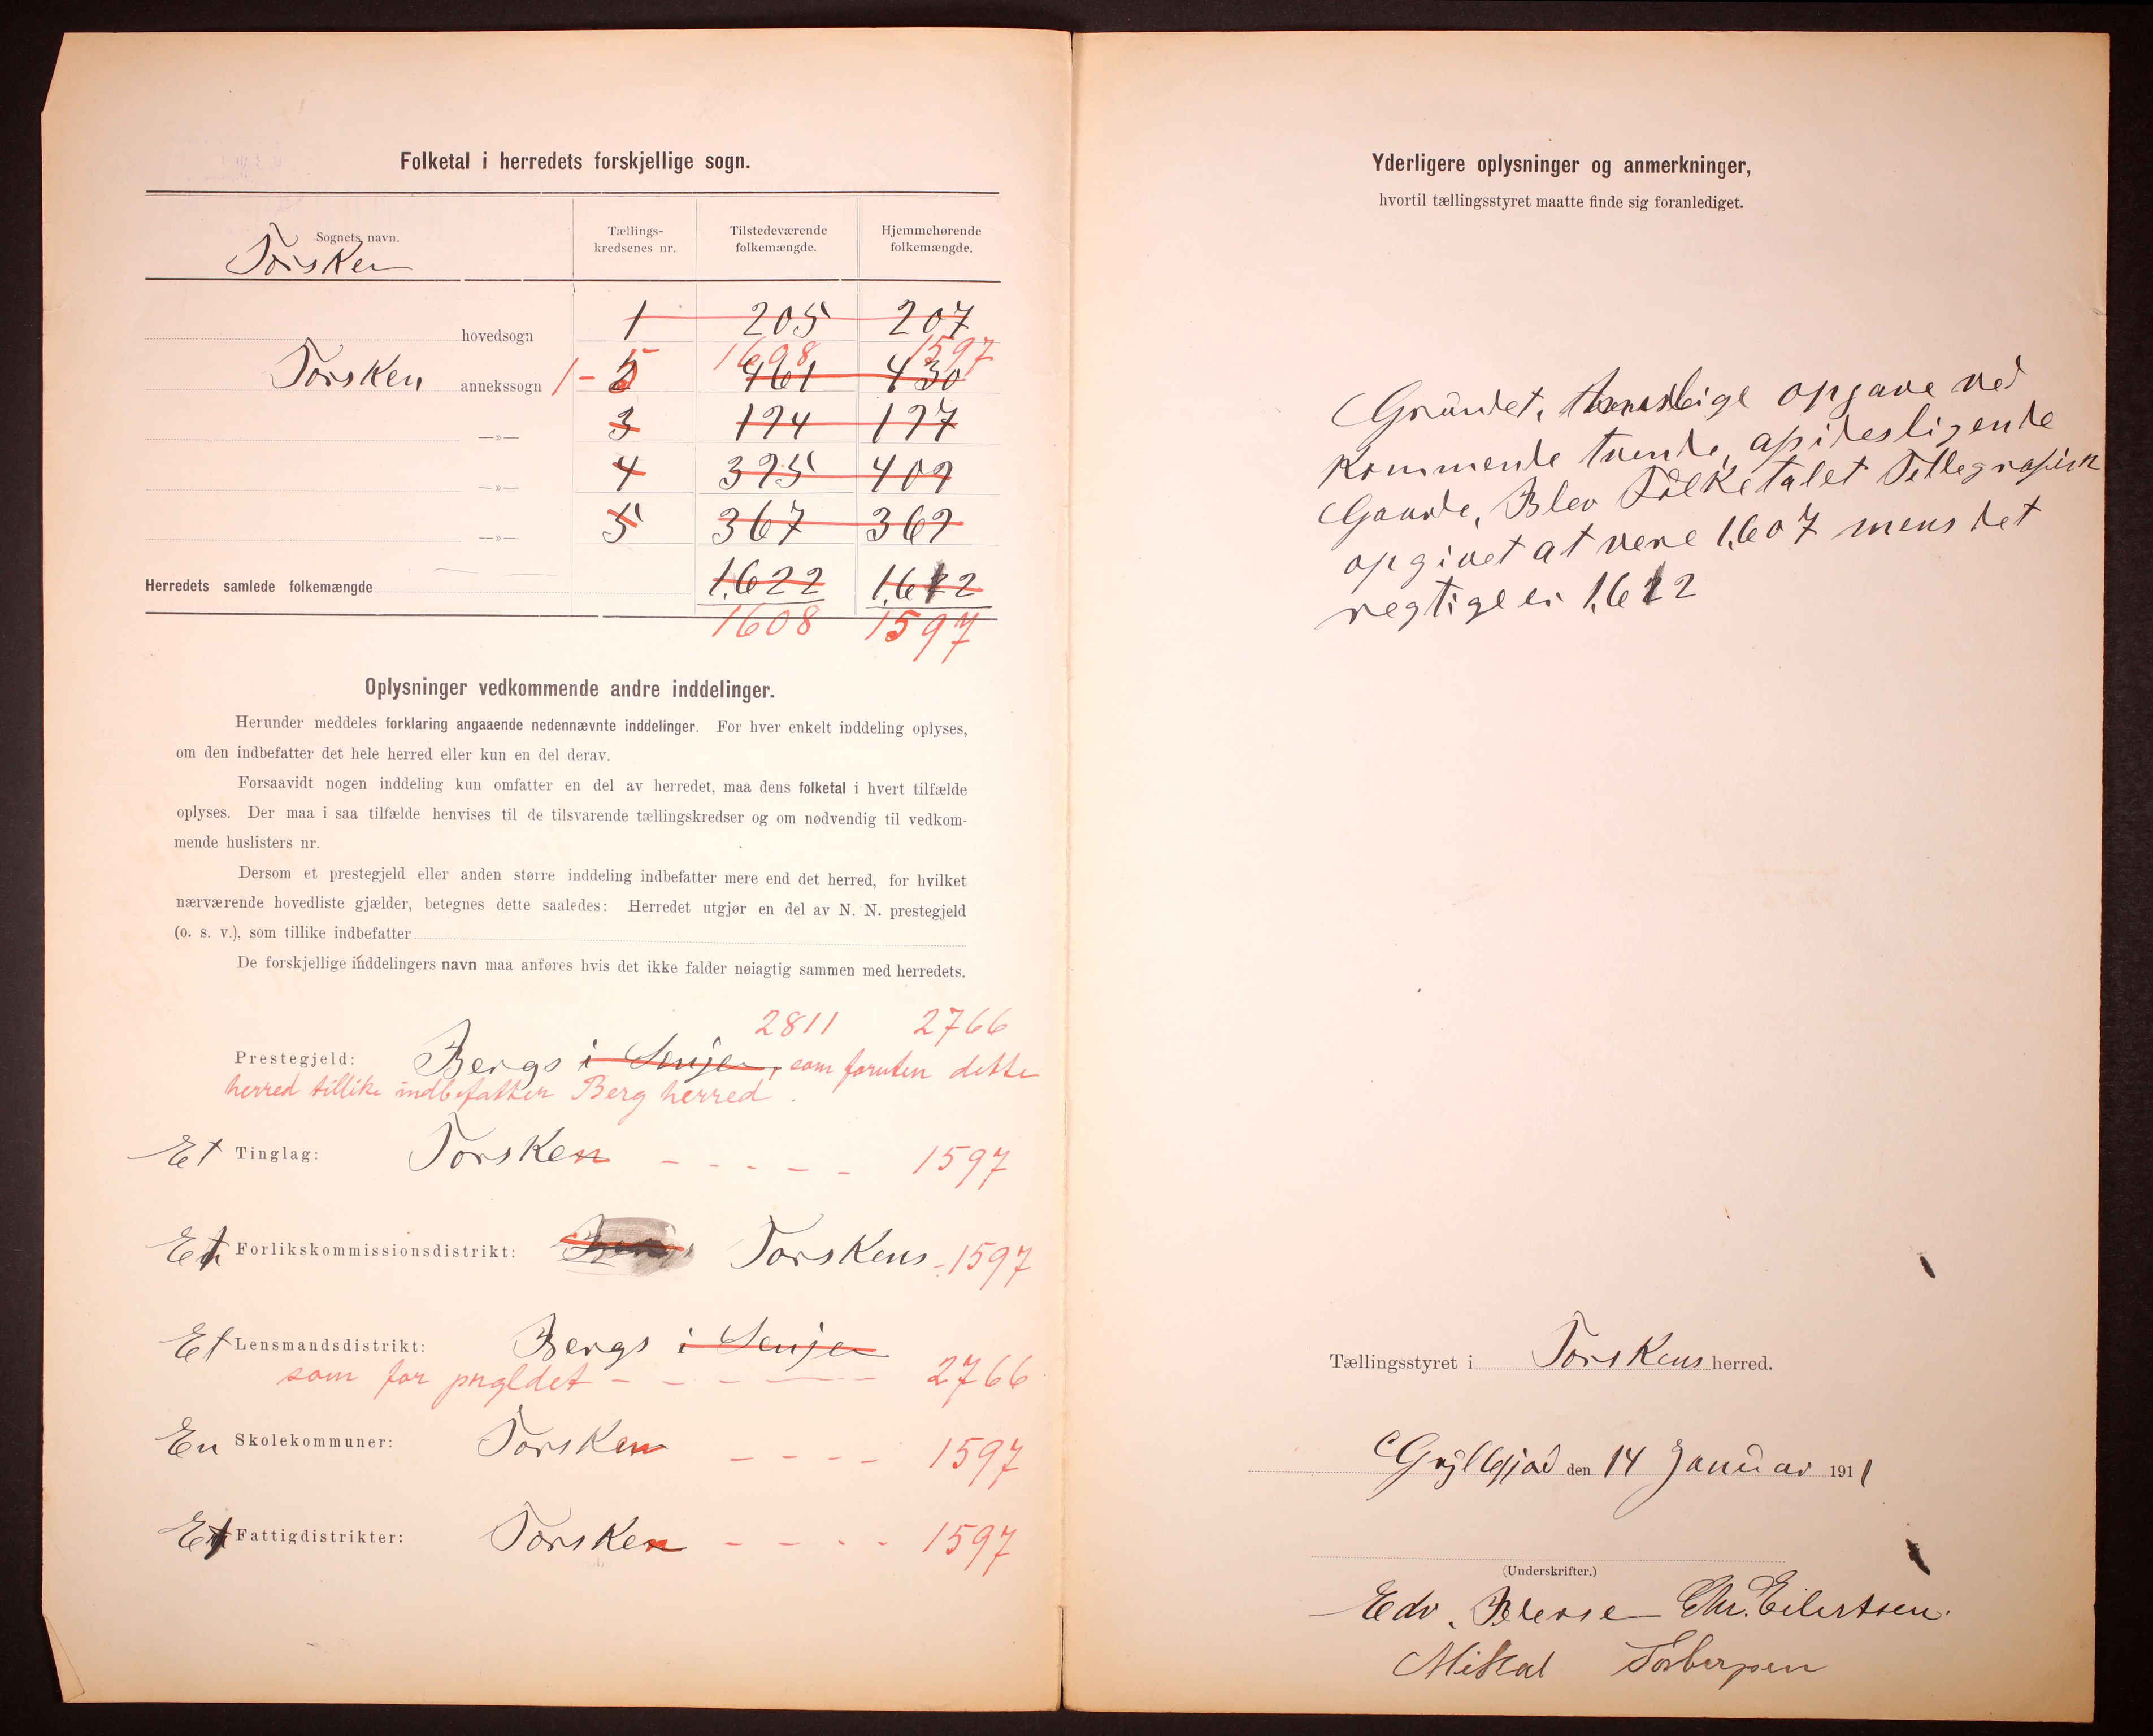 Folketal i herredets forskjellige sogn.
Sognets navn.
Torsken
Tællings-
kredsenes nr.
Tilstedeværende
folkemængde.
Hjemmehørende
folkemængde.
hovedsogn 1 205 207
1608 1597
Torsken annekssogn 1-5 2 461 430
—»— 3 194 197
—»— 4 395 409
—»— 5 367 369
Herredets samlede folkemængde 1.622 1.612
1608 1597
Oplysninger vedkommende andre inddelinger.
Herunder meddeles forklaring angaaende nedennævnte inddelinger. For hver enkelt inddeling oplyses,
om den indbefatter det hele herred eller kun en del derav.
Forsaavidt nogen inddeling kun omfatter en del av herredet, maa dens folketal i hvert tilfælde
oplyses. Der maa i saa tilfælde henvises til de tilsvarende tællingskredser og om nødvendig til vedkom-
mende huslisters nr.
Dersom et prestegjeld eller anden større inddeling indbefatter mere end det herred, for hvilket
nærværende hovedliste gjælder, betegnes dette saaledes: Herredet utgjør en del av N. N. prestegjeld
(o. s. v.), som tillike indbefatter
De forskjellige inddelingers navn maa anføres hvis det ikke falder nøiagtig sammen med herredets.
2811 2766
Prestegjeld: Bergs i Senjen, som foruten dette
herred tillike indbefatter Berg herred.
Et Tinglag: Torsken - - - - - 1597
Et Forlikskommissionsdistrikt: Bergs Torskens - 1597
Et Lensmandsdistrikt: Bergs i Senjen
som for prgldet - - - - - 2766
En Skolekommuner: Torsken - - - - 1597
Et Fattigdistrikter: Torsken - - - - - 1597
Yderligere oplysninger og anmerkninger,
hvortil tællingsstyret maatte finde sig foranlediget.
Grundet, opgave ved
kommende tvende, apidesligende
Gaarde, Blev Folketalet Tellegrafisk
opgivet at vere 1.607 mens det
regtige er 1.612
Tællingsstyret i Torskens herred.
Gryllefjord den 14 Januar 1911
(Underskrifter.)
Edv. Pederse Chr. Eilertsen.
Mikal Torbergsen